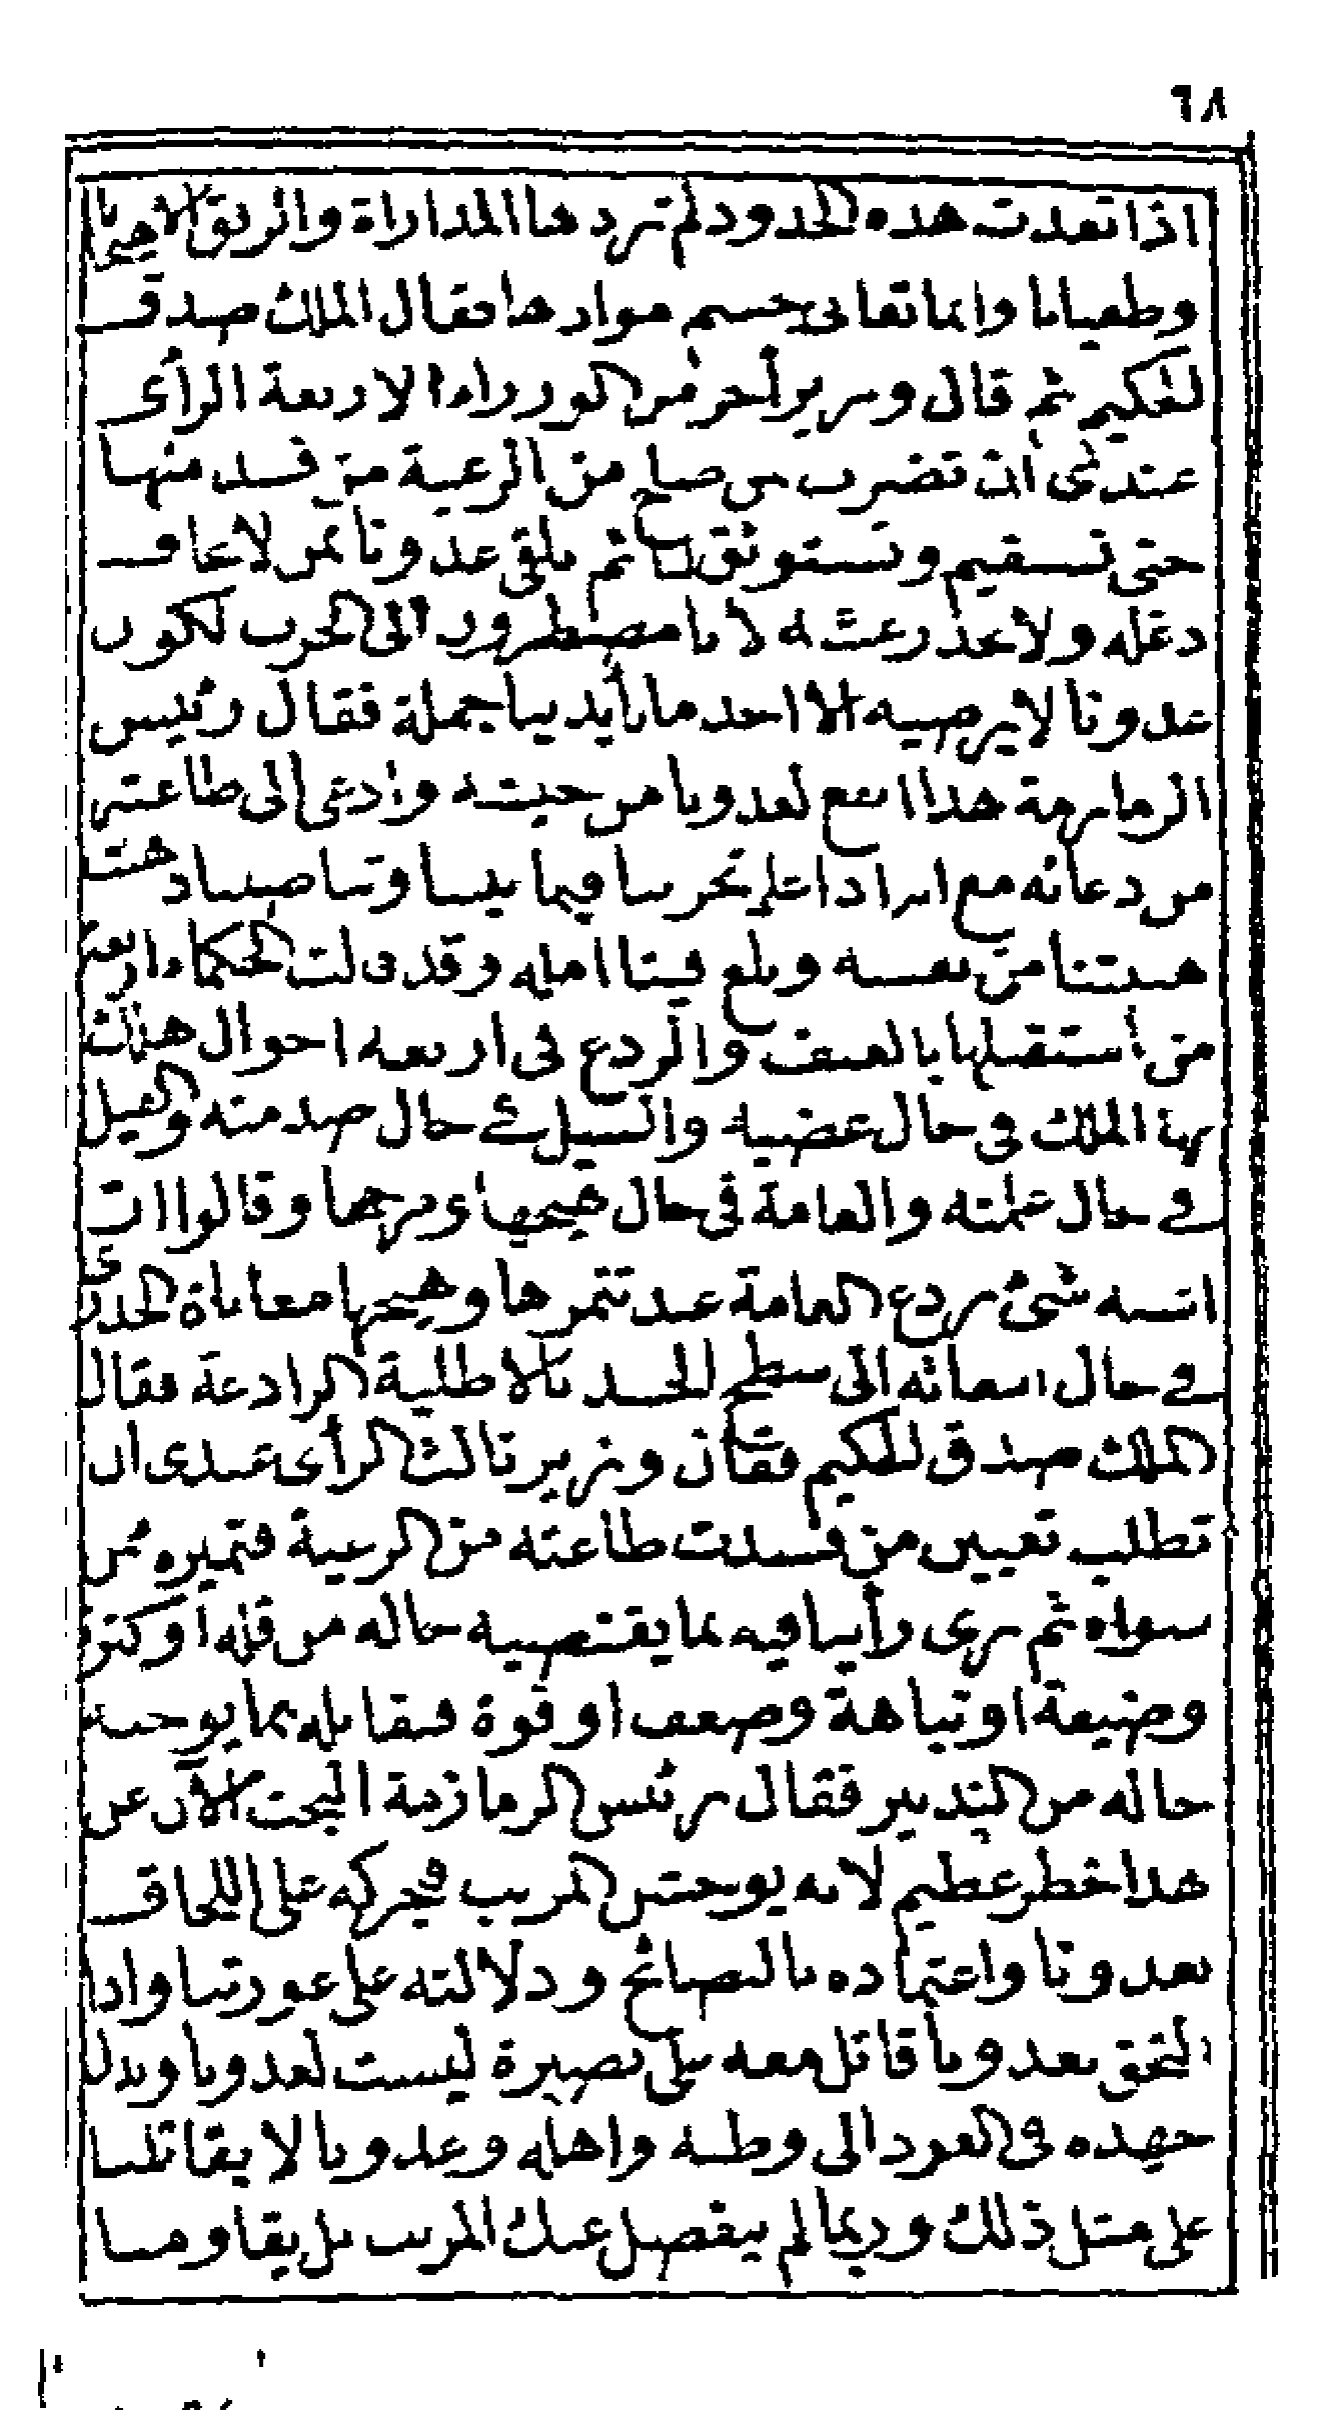 ٦٨
اذا تعدت هذه الحدود لم تزدها المداراة والرفق الا هيجانا
وطغيانا وانما تعانى بحسم موادها فقال الملك صدق
الحكيم ثم قال وزير آخر من الوزراء الاربعة الرأى
عندى ان تضرب بمن صلح من الرعية من فسد منها
حتى تستقيم وتستوثق لنا ثم نلقى عدونا بمن لا نخاف
دغله ولا نحذر رعثه لانا مضطرون الى الحرب لكون
عدونا لا يرضيه الا اخذ ما بأيدينا جملة فقال رئيس
الزمازمة هذا انفع لعدونا من جيشه وادعى الى طاعته
من دعائه مع انبرادا على تحربنا فيما بيننا وتناصبنا ذهبت
هيبتنا من نفسه وبلغ فينا امله وقد قالت الحكماء اربعة
من استقبلها بالعنف والردع فى اربعه احوال هلك
بها الملك فى حال غضبه والسيل فى حال صدمته والفيل
فى حال غلمته والعامة فى حال هيجها ومرجها وقالوا ان
اشبه شئ بردع العامة عند تنمرها وهيجها معاناة الجدرى
فى حال انبعاثه الى سطح الجسد بالاطلية الرادعة فقال
الملك صدق الحكيم فقال وزير ثالث الرأى عندى ان
تطلب تعيين من فسدت طاعته من الرعية فتميزه ممن
سواه ثم نرى رأينا فيه بما يقتضيه حاله من قلة او كثرة
وضيعة او نباهة وضعف او قوة فنقابله بما يوجبه
حاله من التدبير فقال رئيس الزمازمة البحث الآن عن
هذا خطر عظيم لانه يوحش المريب فيحركه على اللحاق
بعدونا واعتماده بالنصائح ودلالته على عورتنا واذا
التحق بعدونا قاتل معه على بصيرة ليست لعدونا وبذل
جهده فى العود الى وطنه واهله وعدونا لا يقاتلنا
على مثل ذلك وربما لم ينفصل عنك المريب بل يقاومنا